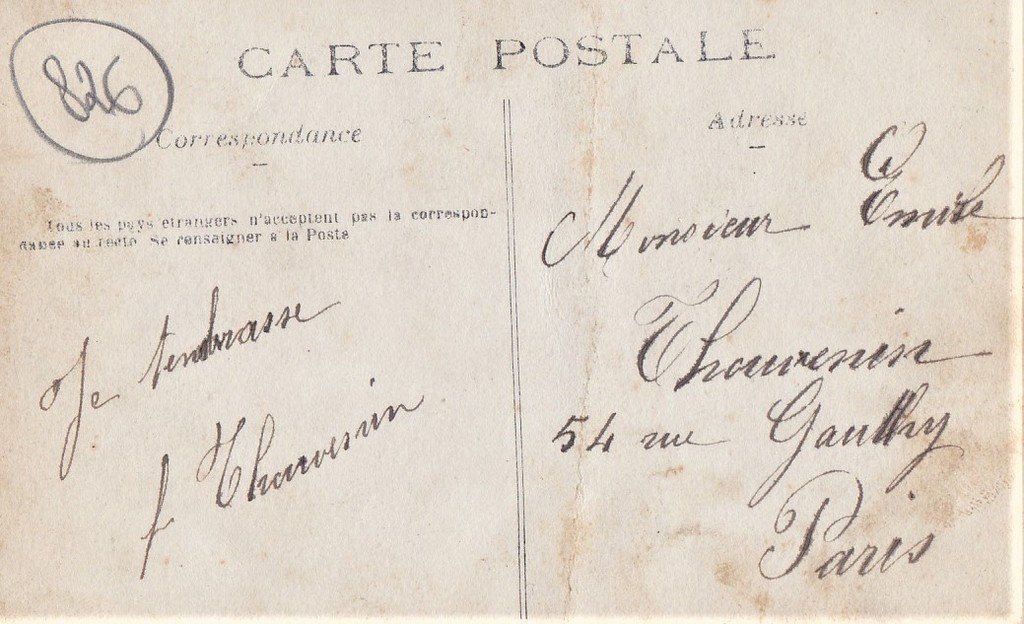 826
CARTE POSTALE
Correspondance
Tous les pays étrangers n'acceptent pas la correspon-
dance au recto Se renseigner à la Poste
Je tembrasse
f Thouvenin
Adresse
Monsieur Emile
Thouvenin
54 rue Gauthey
Paris